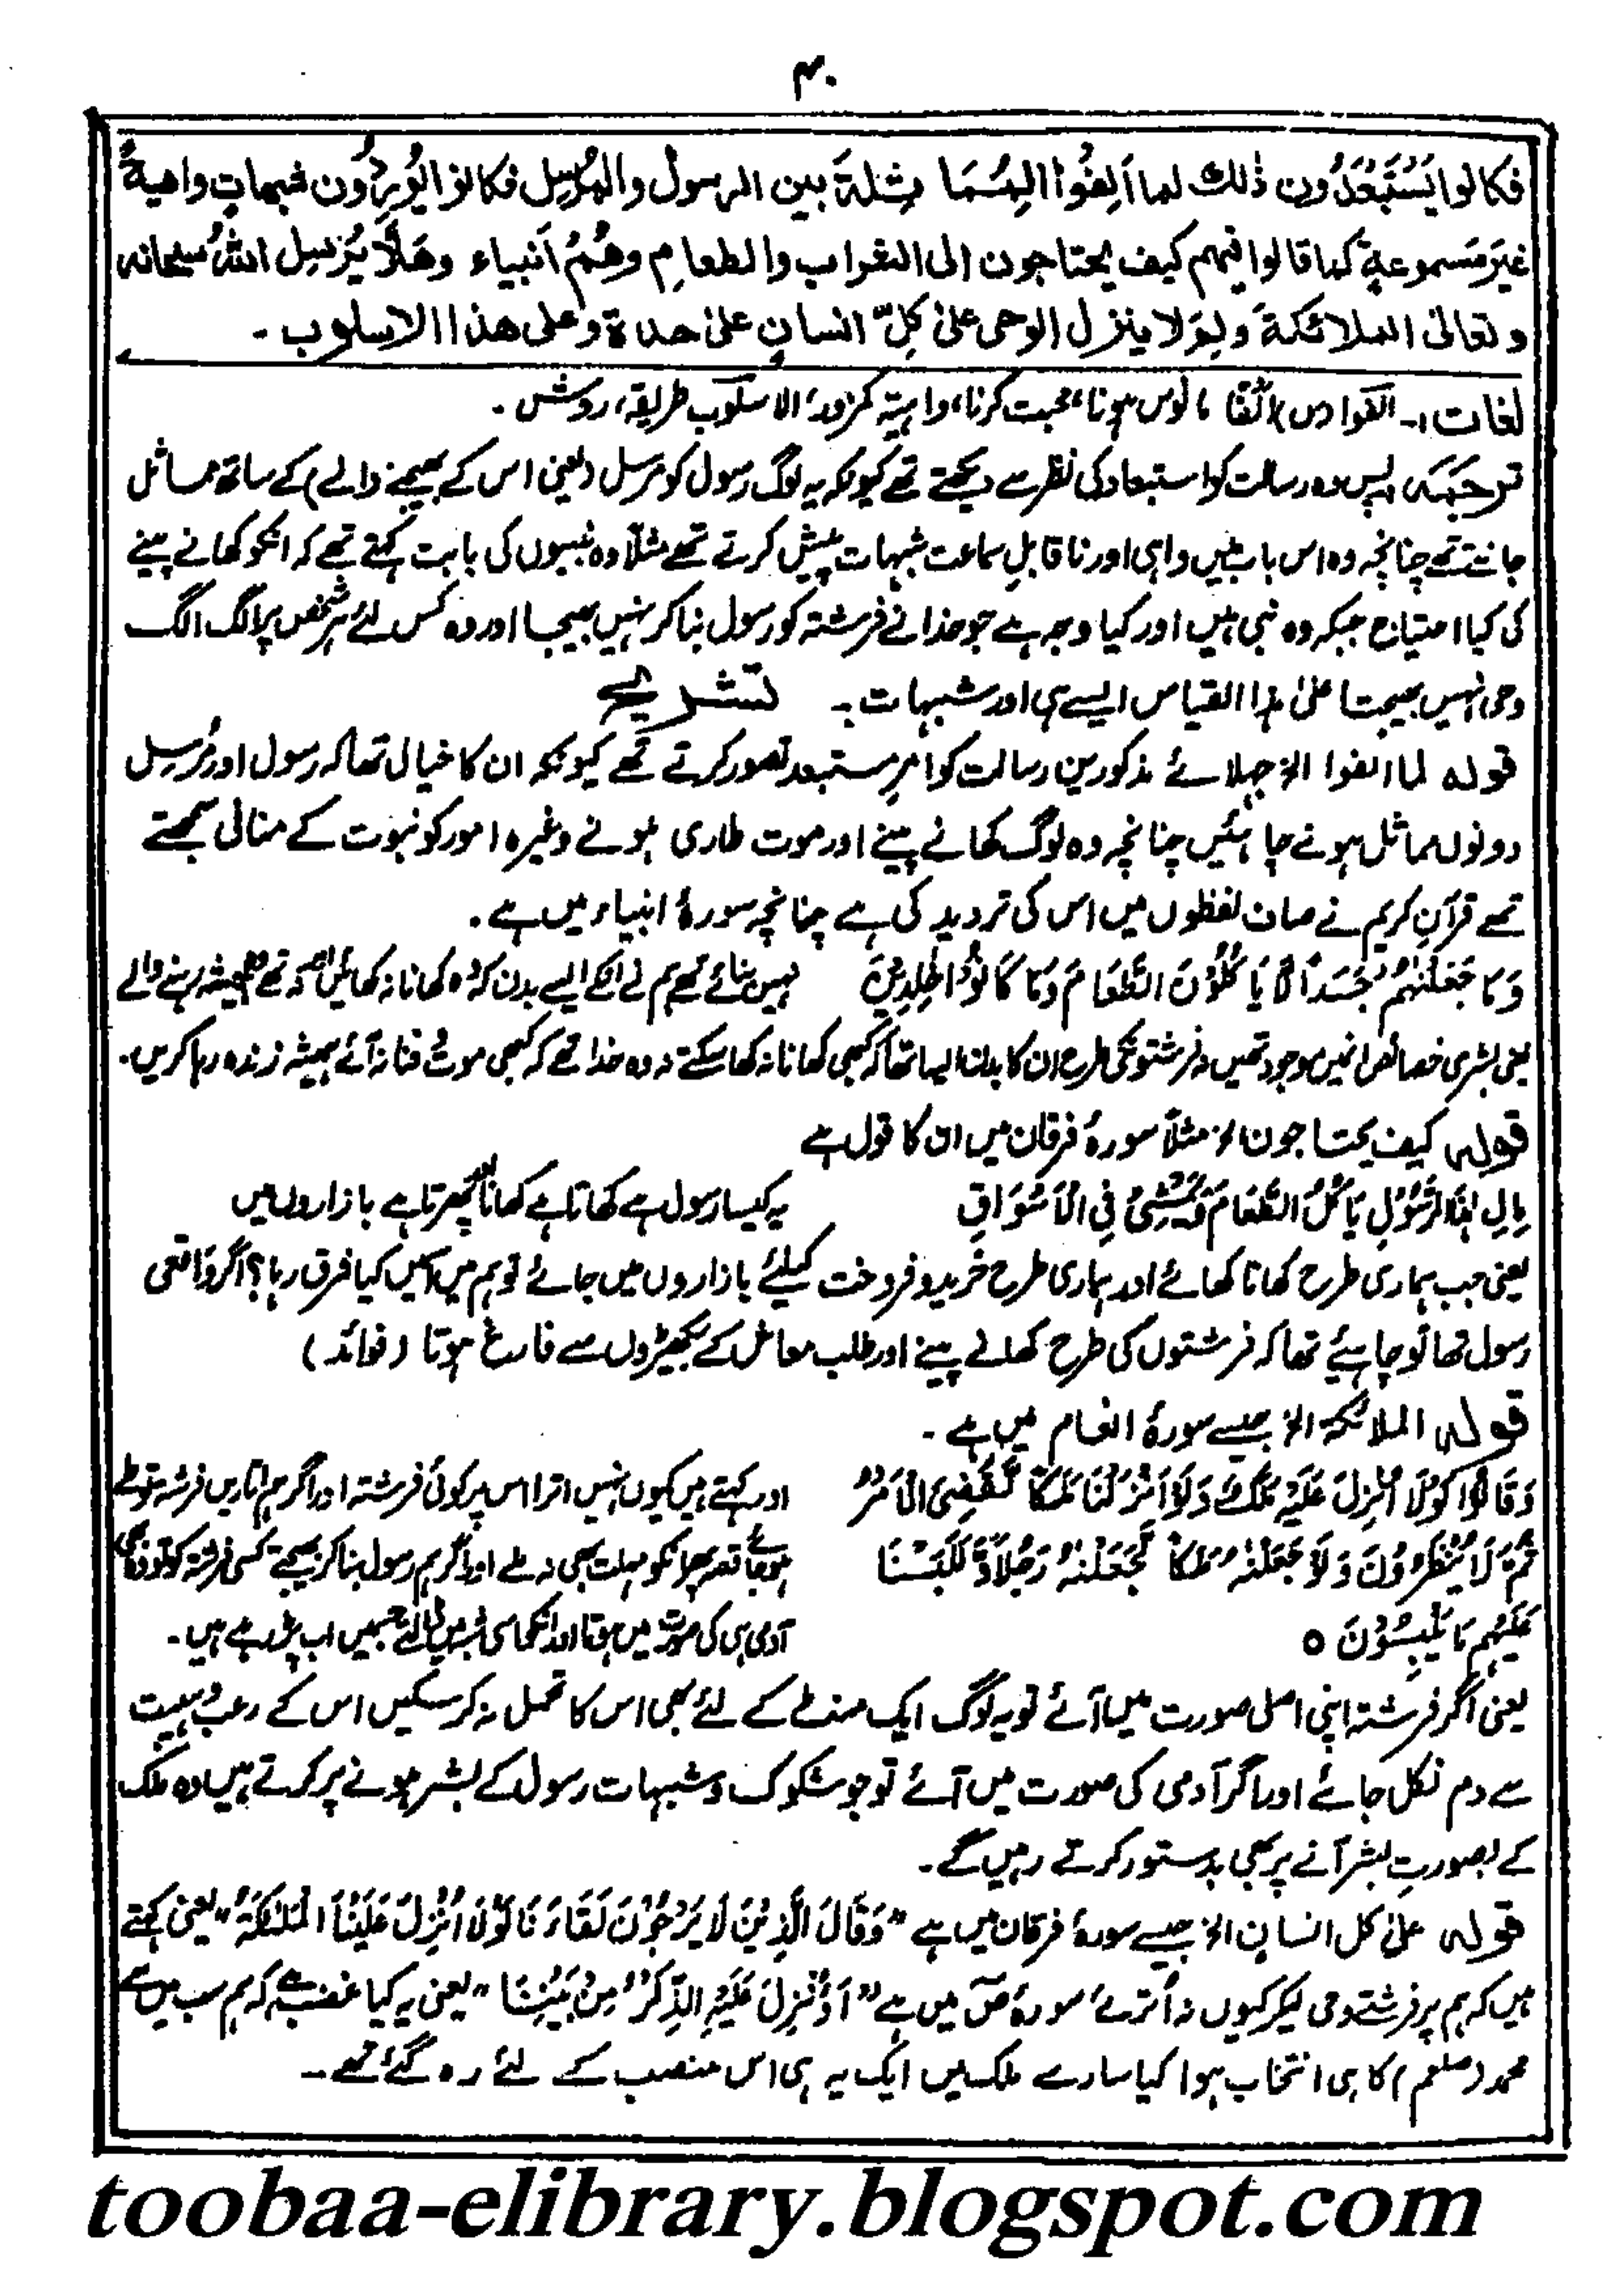 ۴۰
فكانوا يَسْتَبْعِدُون ذٰلك لما اَلِفُوْا المُمَا ثِلةَ بين الرسول والمُرْسِل فكانوا يُورِدُون شبهاتٍ واهيةً
غيرَ مَسموعةٍ كما قالوا فيهم كيف يحتاجون الى الشراب والطعامِ وهُمُ اَنبياء وهَلَّا يُرْسِل اللهُ سبحانه
وتعالىٰ الملائكةَ ولِمَ لا ينزل الوحى علىٰ كلِّ انسانٍ علىٰ حدة وعلى هذا الاسلوب ۔
لغات :۔ الفوا (س) اَلْفًا ، مانوس ہونا، محبت کرنا، واہیۃ کمزور، الاسلوب طریقہ، روش ۔
ترجمہ پس وہ رسالت کو استبعاد کی نظر سے دیکھتے تھے کیونکہ یہ لوگ رسول کو مُرسل (یعنی اس کے بھیجنے والے) کے ساتھ مماثل
جانتے تھے چنانچہ وہ اس باب میں واہی اور ناقابلِ سماعت شبہات پیش کرتے تھے مثلاً وہ نبیوں کی بابت کہتے تھے کہ انکو کھانے پینے
کی کیا احتیاج جبکہ وہ نبی ہیں اور کیا وجہ ہے جو خدا نے فرشتہ کو رسول بنا کر نہیں بھیجا اور وہ کس لئے ہر شخص پر الگ الگ
وحی نہیں بھیجتا علیٰ ہذا القیاس ایسے ہی اور شبہات :۔ تشریح
قولہ لما الفوا الخ جہلائے مذکورین رسالت کو امرِ مستبعد تصور کرتے تھے کیونکہ ان کا خیال تھا کہ رسول اور مُرسِل
دونوں مماثل ہونے چاہئیں چنانچہ وہ لوگ کھانے پینے اور موت طاری ہونے وغیرہ امور کو نبوت کے منافی سمجھتے
تھے قرآن کریم نے صاف لفظوں میں اس کی تردید کی ہے چنانچہ سورۂ انبیاء میں ہے ۔
وَمَا جَعَلْنٰہُمْ جَسَدًا لَّا یَاْکُلُوْنَ الطَّعَامَ وَمَا کَانُوْا خٰلِدِیْنَ نہیں بنائے تھے ہم نے انکے ایسے بدن کہ وہ کھانا نہ کھائیں اور نہ تھے ہمیشہ رہنے والے
یعنی بشری خصائص انمیں موجود تھیں نہ فرشتونکی طرح ان کا بدن ایسا تھا کہ کبھی کھانا نہ کھا سکتے نہ وہ خدا تھے کہ کبھی موت و فنا نہ آئے ہمیشہ زندہ رہا کریں۔
قولہ کیف یحتاجون الخ مثلاً سورۂ فرقان میں ان کا قول ہے
مَالِ ہٰذَا الرَّسُوْلِ یَاْکُلُ الطَّعَامَ وَیَمْشِیْ فِی الْاَسْوَاقِ یہ کیسا رسول ہے کھاتا ہے کھانا اور پھرتا ہے بازاروں میں
یعنی جب ہماری طرح کھانا کھائے اور ہماری طرح خرید و فروخت کیلئے بازاروں میں جائے تو ہم میں اسمیں کیا فرق رہا؟ اگر واقعی
رسول تھا تو چاہئے تھا کہ فرشتوں کی طرح کھانے پینے اور طلب معاش کے بکھیڑوں سے فارغ ہوتا (فوائد)
قولہ الملائکۃ الخ جیسے سورۂ انعام میں ہے ۔
وَقَالُوْا لَوْلَا اُنْزِلَ عَلَیْہِ مَلَکٌ وَلَوْ اَنْزَلْنَا مَلَکًا لَّقُضِیَ الْاَمْرُ اور کہتے ہیں کیوں نہیں اترا اس پر کوئی فرشتہ اور اگر ہم اتاریں فرشتہ تو طے
ثُمَّ لَا یُنْظَرُوْنَ وَلَوْ جَعَلْنٰہُ مَلَکًا لَّجَعَلْنٰہُ رَجُلًا وَّلَلَبَسْنَا ہو جائے قصہ پھر انکو مہلت بھی نہ ملے اور اگر ہم رسول بنا کر بھیجتے کسی فرشتہ کو تو وہ بھی
عَلَیْہِمْ مَّا یَلْبِسُوْنَ ○ آدمی ہی کی صورت میں ہوتا اور انکو اسی شبہ میں ڈالتے جسمیں اب پڑ رہے ہیں ۔
یعنی اگر فرشتہ اپنی اصل صورت میں آئے تو یہ لوگ ایک منٹ کے لئے بھی اس کا تحمل نہ کر سکیں اس کے رعب و ہیبت
سے دم نکل جائے اور اگر آدمی کی صورت میں آئے تو جو شکوک و شبہات رسول کے بشر ہونے پر کرتے ہیں وہ ملک
کے بصورتِ بشر آنے پر بھی بدستور کرتے رہیں گے ۔
قولہ علیٰ کل انسان الخ جیسے سورۂ فرقان میں ہے "وَقَالَ الَّذِیْنَ لَا یَرْجُوْنَ لِقَاءَنَا لَوْلَا اُنْزِلَ عَلَیْنَا الْمَلٰئِکَۃُ" یعنی کہتے
ہیں کہ ہم پر فرشتے وحی لیکر کیوں نہ اُترے سورۂ صٓ میں ہے "اَوُنْزِلَ عَلَیْہِ الذِّکْرُ مِنْ بَیْنِنَا" یعنی یہ کیا غضب ہے کہ ہم سب میں سے
محمد (صلعم) کا ہی انتخاب ہوا کیا سارے ملک میں ایک یہ ہی اس منصب کے لئے رہ گئے تھے ۔
toobaa-elibrary.blogspot.com